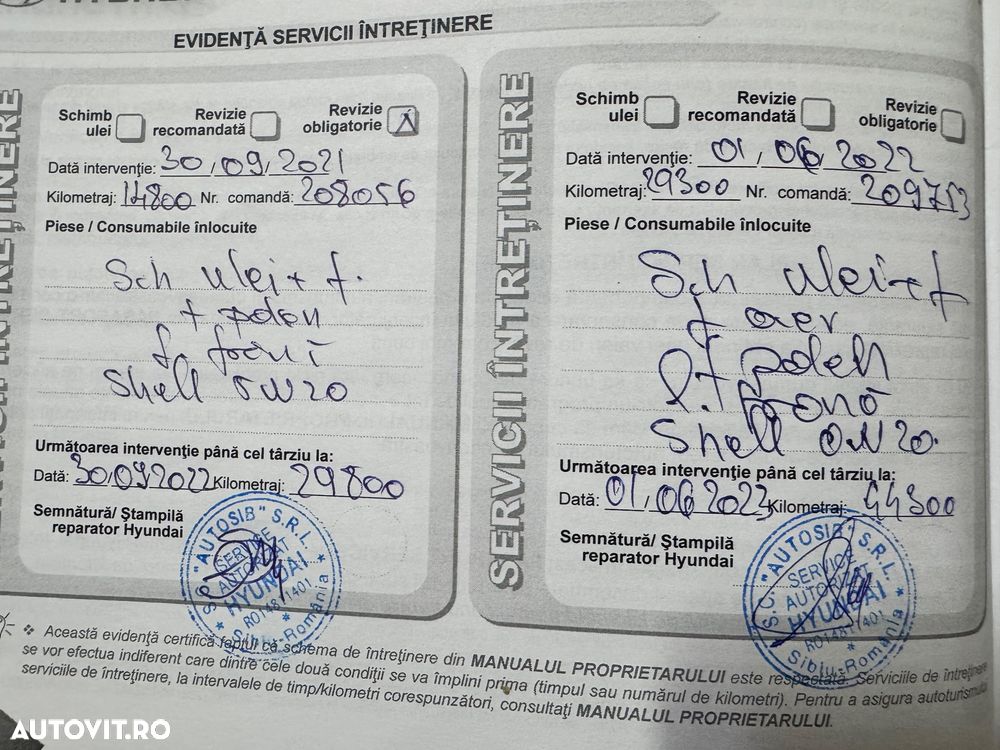 EVIDENŢĂ SERVICII ÎNTREŢINERE
SERVICII ÎNTREŢINERE
Schimb ulei
Revizie recomandată
Revizie obligatorie
Dată intervenţie: 30/09/2021
Kilometraj: 14800 Nr. comandă: 208056
Piese / Consumabile înlocuite
Sch ulei + f.
+ polen
Shell 0W20
Următoarea intervenţie până cel târziu la:
Dată: 30.09.2022 Kilometraj: 29800
Semnătură/ Ştampilă
reparator Hyundai
S.C. "AUTOSIB" S.R.L.
SERVICE
AUTORIZAT
HYUNDAI
RO14811401
Sibiu-România
SERVICII ÎNTREŢINERE
Schimb ulei
Revizie recomandată
Revizie obligatorie
Dată intervenţie: 01/06/2022
Kilometraj: 29300 Nr. comandă: 209753
Piese / Consumabile înlocuite
Sch ulei + f
f aer
f polen
Shell 0W20.
Următoarea intervenţie până cel târziu la:
Dată: 01.06.2023 Kilometraj: 44300
Semnătură/ Ştampilă
reparator Hyundai
S.C. "AUTOSIB" S.R.L.
SERVICE
AUTORIZAT
HYUNDAI
RO14811401
Sibiu-România
❖ Această evidenţă certifică faptul că schema de întreţinere din MANUALUL PROPRIETARULUI este respectată. Serviciile de întreţinere
se vor efectua indiferent care dintre cele două condiţii se va împlini prima (timpul sau numărul de kilometri). Pentru a asigura autoturismului
serviciile de întreţinere, la intervalele de timp/kilometri corespunzători, consultaţi MANUALUL PROPRIETARULUI.
AUTOVIT.RO